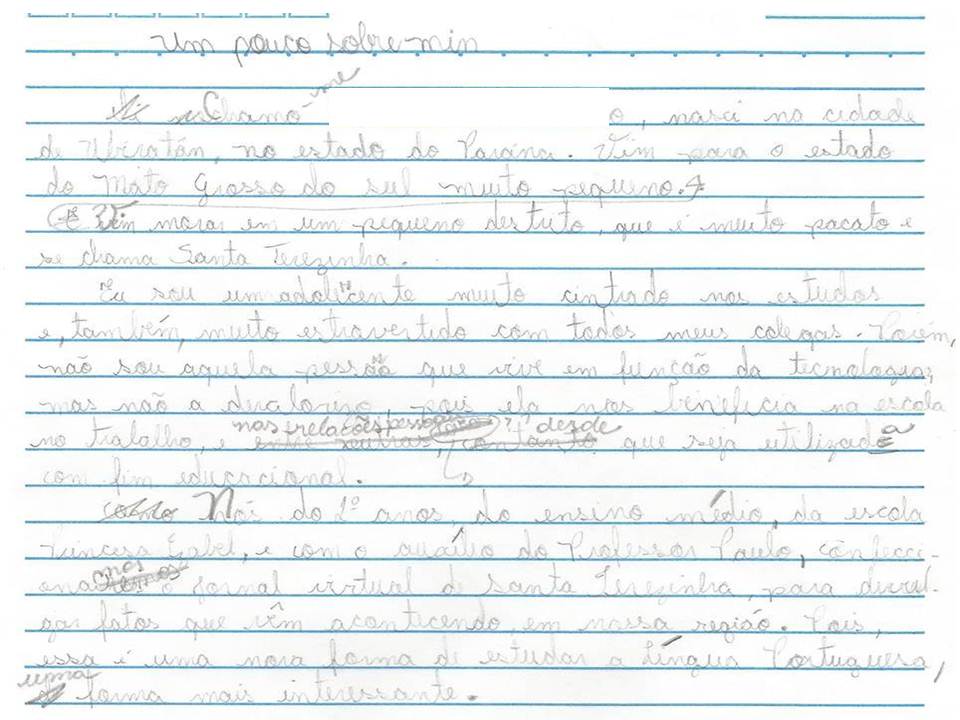 Um pouco sobre min
Chamo-me o, nasci na cidade
de Ubiratán, no estado do Paraná. Vim para o estado
do Mato Grosso do sul muito pequeno.
Vim morar em um pequeno destrito, que é muito pacato e
se chama Santa Terezinha.
Eu sou um adolecente muito cintrado nos estudos
e, também, muito estravertido com todos meus colegas. Porém,
não sou aquela pessoa que vive em função da tecnologia,
mas não a disvalorizo, pois ela nos beneficia na escola
no trabalho, e nas relações pessoais desde que seja utilizada
com fim educacional.
Nós do 2º anos, do ensino médio, da escola
Princesa Izabel, e com o auxílio do Professor Paulo, confecci-
onamos o jornal virtual de Santa Terezinha, para divul-
gar fatos que vêm acontecendo em nossa região. Pois,
essa é uma nova forma de estudar a Língua Portuguesa,
uma forma mais interessante.